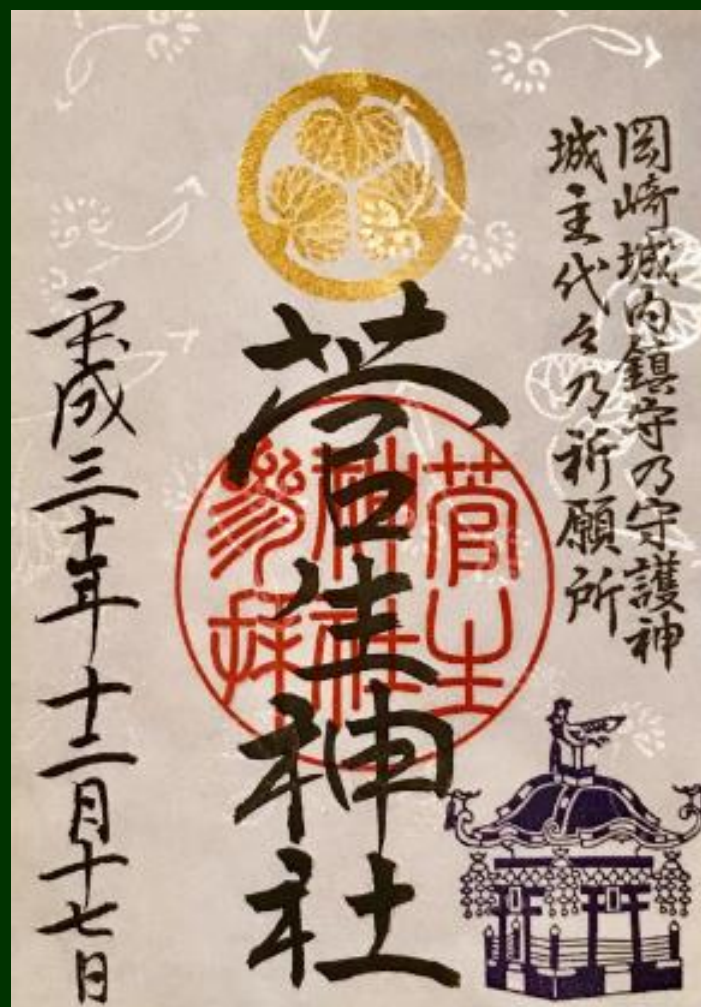 岡崎城内鎮守乃守護神
城主代々乃祈願所
菅生神社
菅生神社参拝
平成三十年十二月十七日